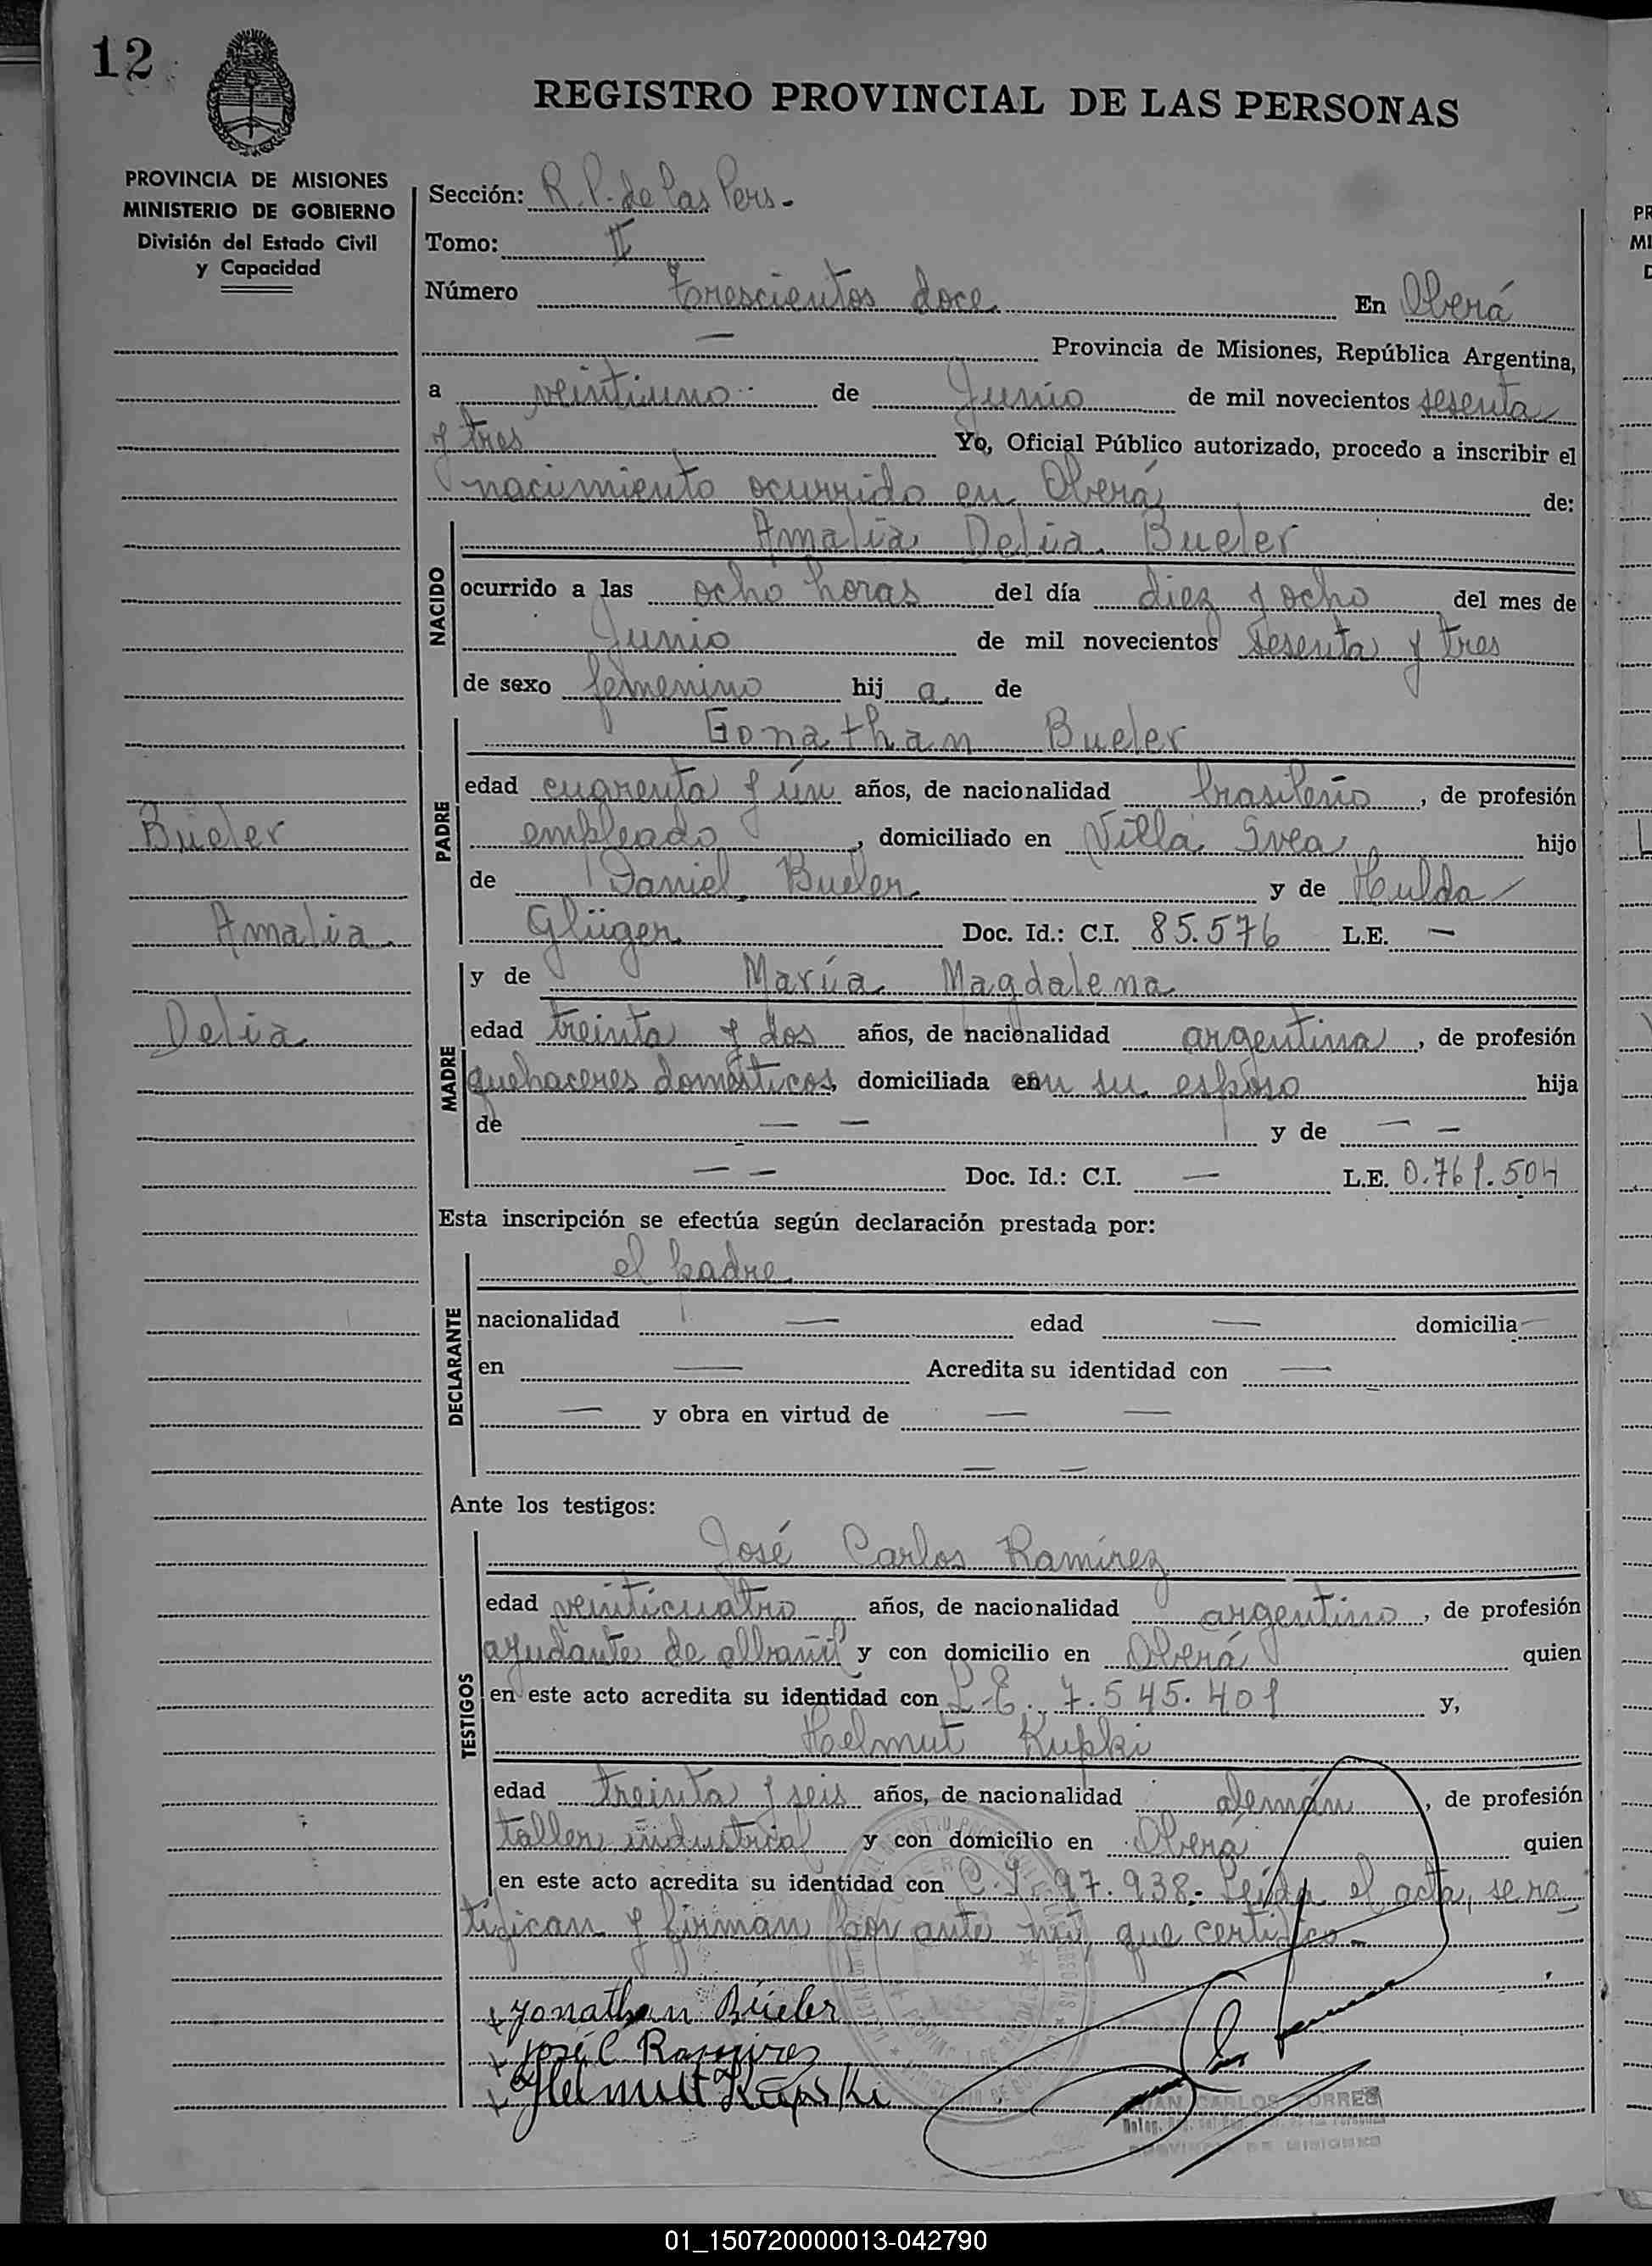 12
REGISTRO PROVINCIAL DE LAS PERSONAS
PROVINCIA DE MISIONES
MINISTERIO DE GOBIERNO
División del Estado Civil
y Capacidad
Sección: R.P. de las Pers.
Tomo: II
Número trescientos doce En Oberá
— Provincia de Misiones, República Argentina,
a veintiuno de Junio de mil novecientos sesenta
y tres Yo, Oficial Público autorizado, procedo a inscribir el
nacimiento ocurrido en Oberá de:
NACIDO
Amalia Delia Bueler
ocurrido a las ocho horas del día diez y ocho del mes de
Junio de mil novecientos sesenta y tres
de sexo femenino hij a de
PADRE
Gonathan Bueler
edad cuarenta y ún años, de nacionalidad brasileño, de profesión
empleado, domiciliado en Villa Svea hijo
de Daniel Bueler y de Hulda
Glüger Doc. Id.: C.I. 85.576 L.E. —
Bueler
Amalia
Delia
MADRE
y de María Magdalena
edad treinta y dos años, de nacionalidad argentina, de profesión
quehaceres domésticos, domiciliada en su esposo hija
de — — y de — —
— — Doc. Id.: C.I. — L.E. 0.761.504
Esta inscripción se efectúa según declaración prestada por:
DECLARANTE
el padre
nacionalidad — edad — domicilia —
en — Acredita su identidad con —
— y obra en virtud de — —
— —
Ante los testigos:
TESTIGOS
José Carlos Ramírez
edad veinticuatro años, de nacionalidad argentino, de profesión
ayudante de albañil y con domicilio en Oberá quien
en este acto acredita su identidad con L.E. 7.545.401 y,
Helmut Kupki
edad treinta y seis años, de nacionalidad alemán, de profesión
taller industrial y con domicilio en Oberá quien
en este acto acredita su identidad con C.I. 97.938.- Leída el acta, se ra
tifican y firman por ante mí, que certifico.-
Jonathan Büeler
José C Ramirez
Helmut Kupski
JUAN CARLOS TORRES
PROVINCIA DE MISIONES
01_150720000013-042790